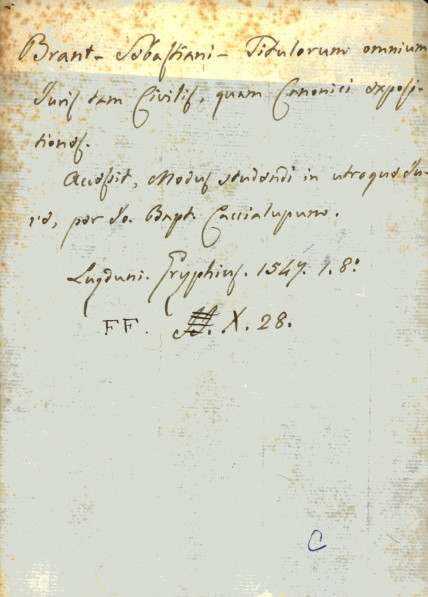 Brant - Sebastiani - Titulorum omnium
Juris tam Civilis, quam Canonici exposi-
tiones.
Accessit, Modus studendi in utroque Ju-
re, per Jo. Bapt. Caccialupum.
Lugduni. Gryphius. 1547. 1. 8°.
FF. X. 28.
C